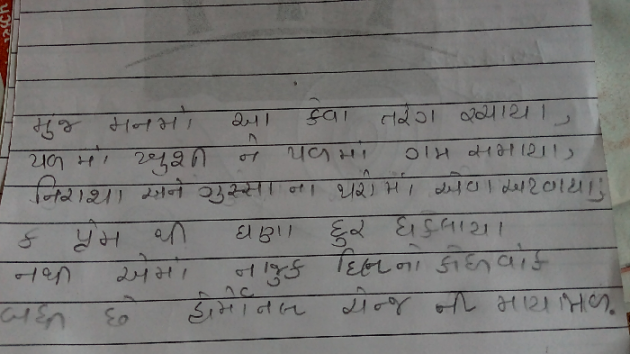 મુજ મનમાં આ કેવા તરંગ રચાયા,
પળ માં ખુશી ને પળમાં ગમ સમાયા,
નિરાશા અને ગુસ્સા ના થરોમાં એવા અટવાયા,
કે પ્રેમ થી ઘણા દુર ધકેલાયા
નથી એમાં નાજુક દિલનો કોઈ વાંક
બધી છે હોર્મોનલ ચેન્જ ની માયાજાળ.